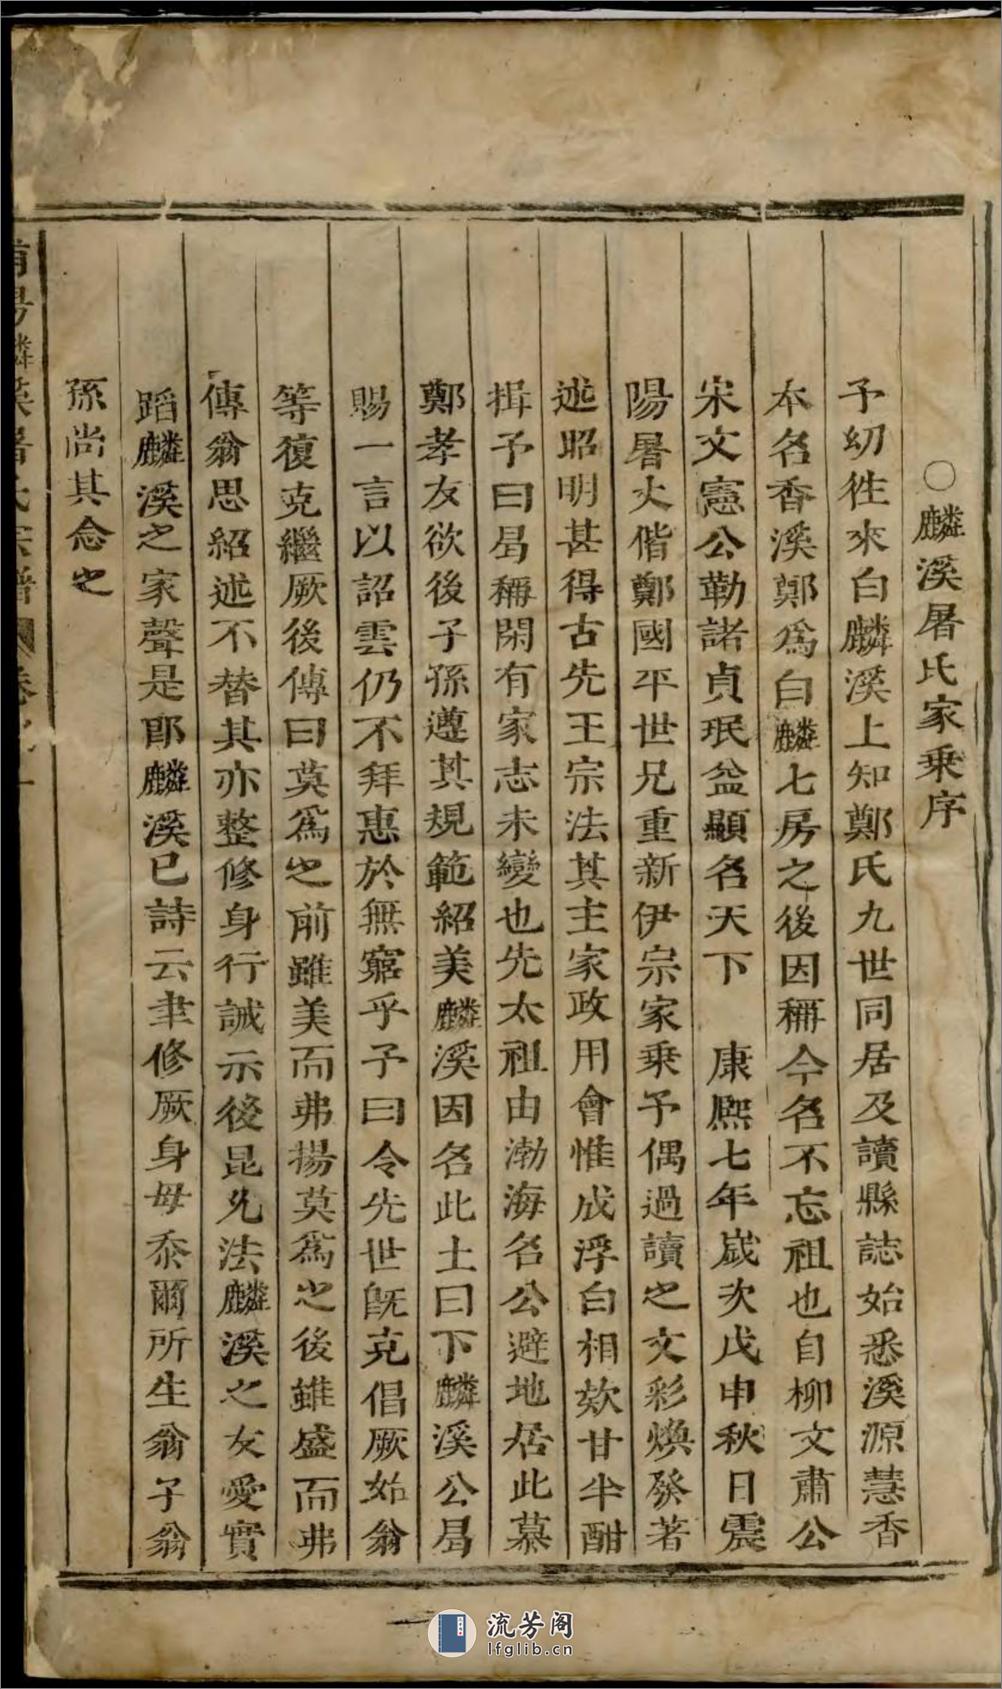 ○麟溪屠氏家乗序
予幼徃來白麟溪上知鄭氏九世同居及讀縣誌始悉溪源慧香
本名香溪鄭為白麟七房之後因稱今名不忘祖也自柳文肅公
宋文憲公勒諸貞珉益顯名天下　康熈七年歲次戊申秋日震
陽暑火偕鄭國平世兄重新伊宗家乗予偶過讀之文彩煥發著
述昭明甚得古先王宗法其主家政用會惟成浮白相欵甘半酣
揖予曰曷稱閑有家志未變也先太祖由渤海名公避地居此慕
鄭孝友欲後子孫遵其規範紹美麟溪因名此土曰下麟溪公曷
賜一言以詔雲仍不拜惠於無窮乎予曰令先世旣克倡厥始翁
等復克繼厥後傳曰莫為之前雖美而弗揚莫為之後雖盛而弗
傳翁思紹述不替其亦整修身行誠示後昆兄法麟溪之友愛實
蹈麟溪之家聲是即麟溪已詩云聿修厥身毋忝爾所生翁子翁
孫尚其念之
麟溪屠氏宗譜 卷之
一
流芳阁
lfglib.cn